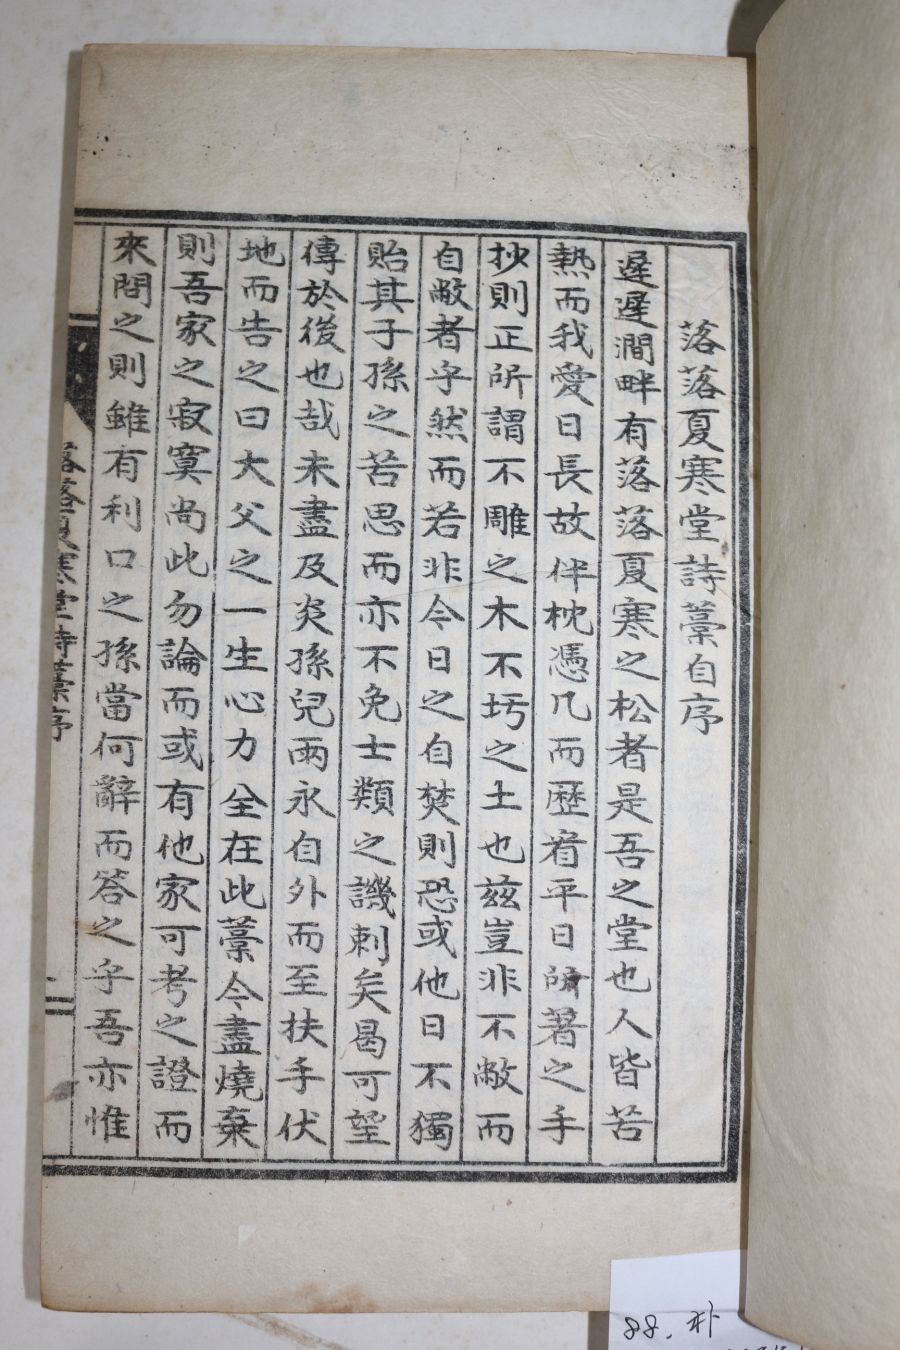 落落夏寒堂詩藁自序
遲遲澗畔有落落夏寒之松者是吾之堂也人皆苦
熱而我愛日長故伴枕憑几而歷看平日所著之手
抄則正所謂不雕之木不圬之土也兹豈非不敝而
自敝者乎然而若非今日之自焚則恐或他日不獨
貽其子孫之苦思而亦不免士類之譏刺矣曷可望
傳於後也哉未盡及炎孫兒兩永自外而至扶手伏
地而告之曰大父之一生心力全在此藁今盡燒棄
則吾家之寂寞尙此勿論而或有他家可考之證而
來問之則雖有利口之孫當何辭而答之乎吾亦惟
落落夏寒堂詩藁序
一
88. 朴